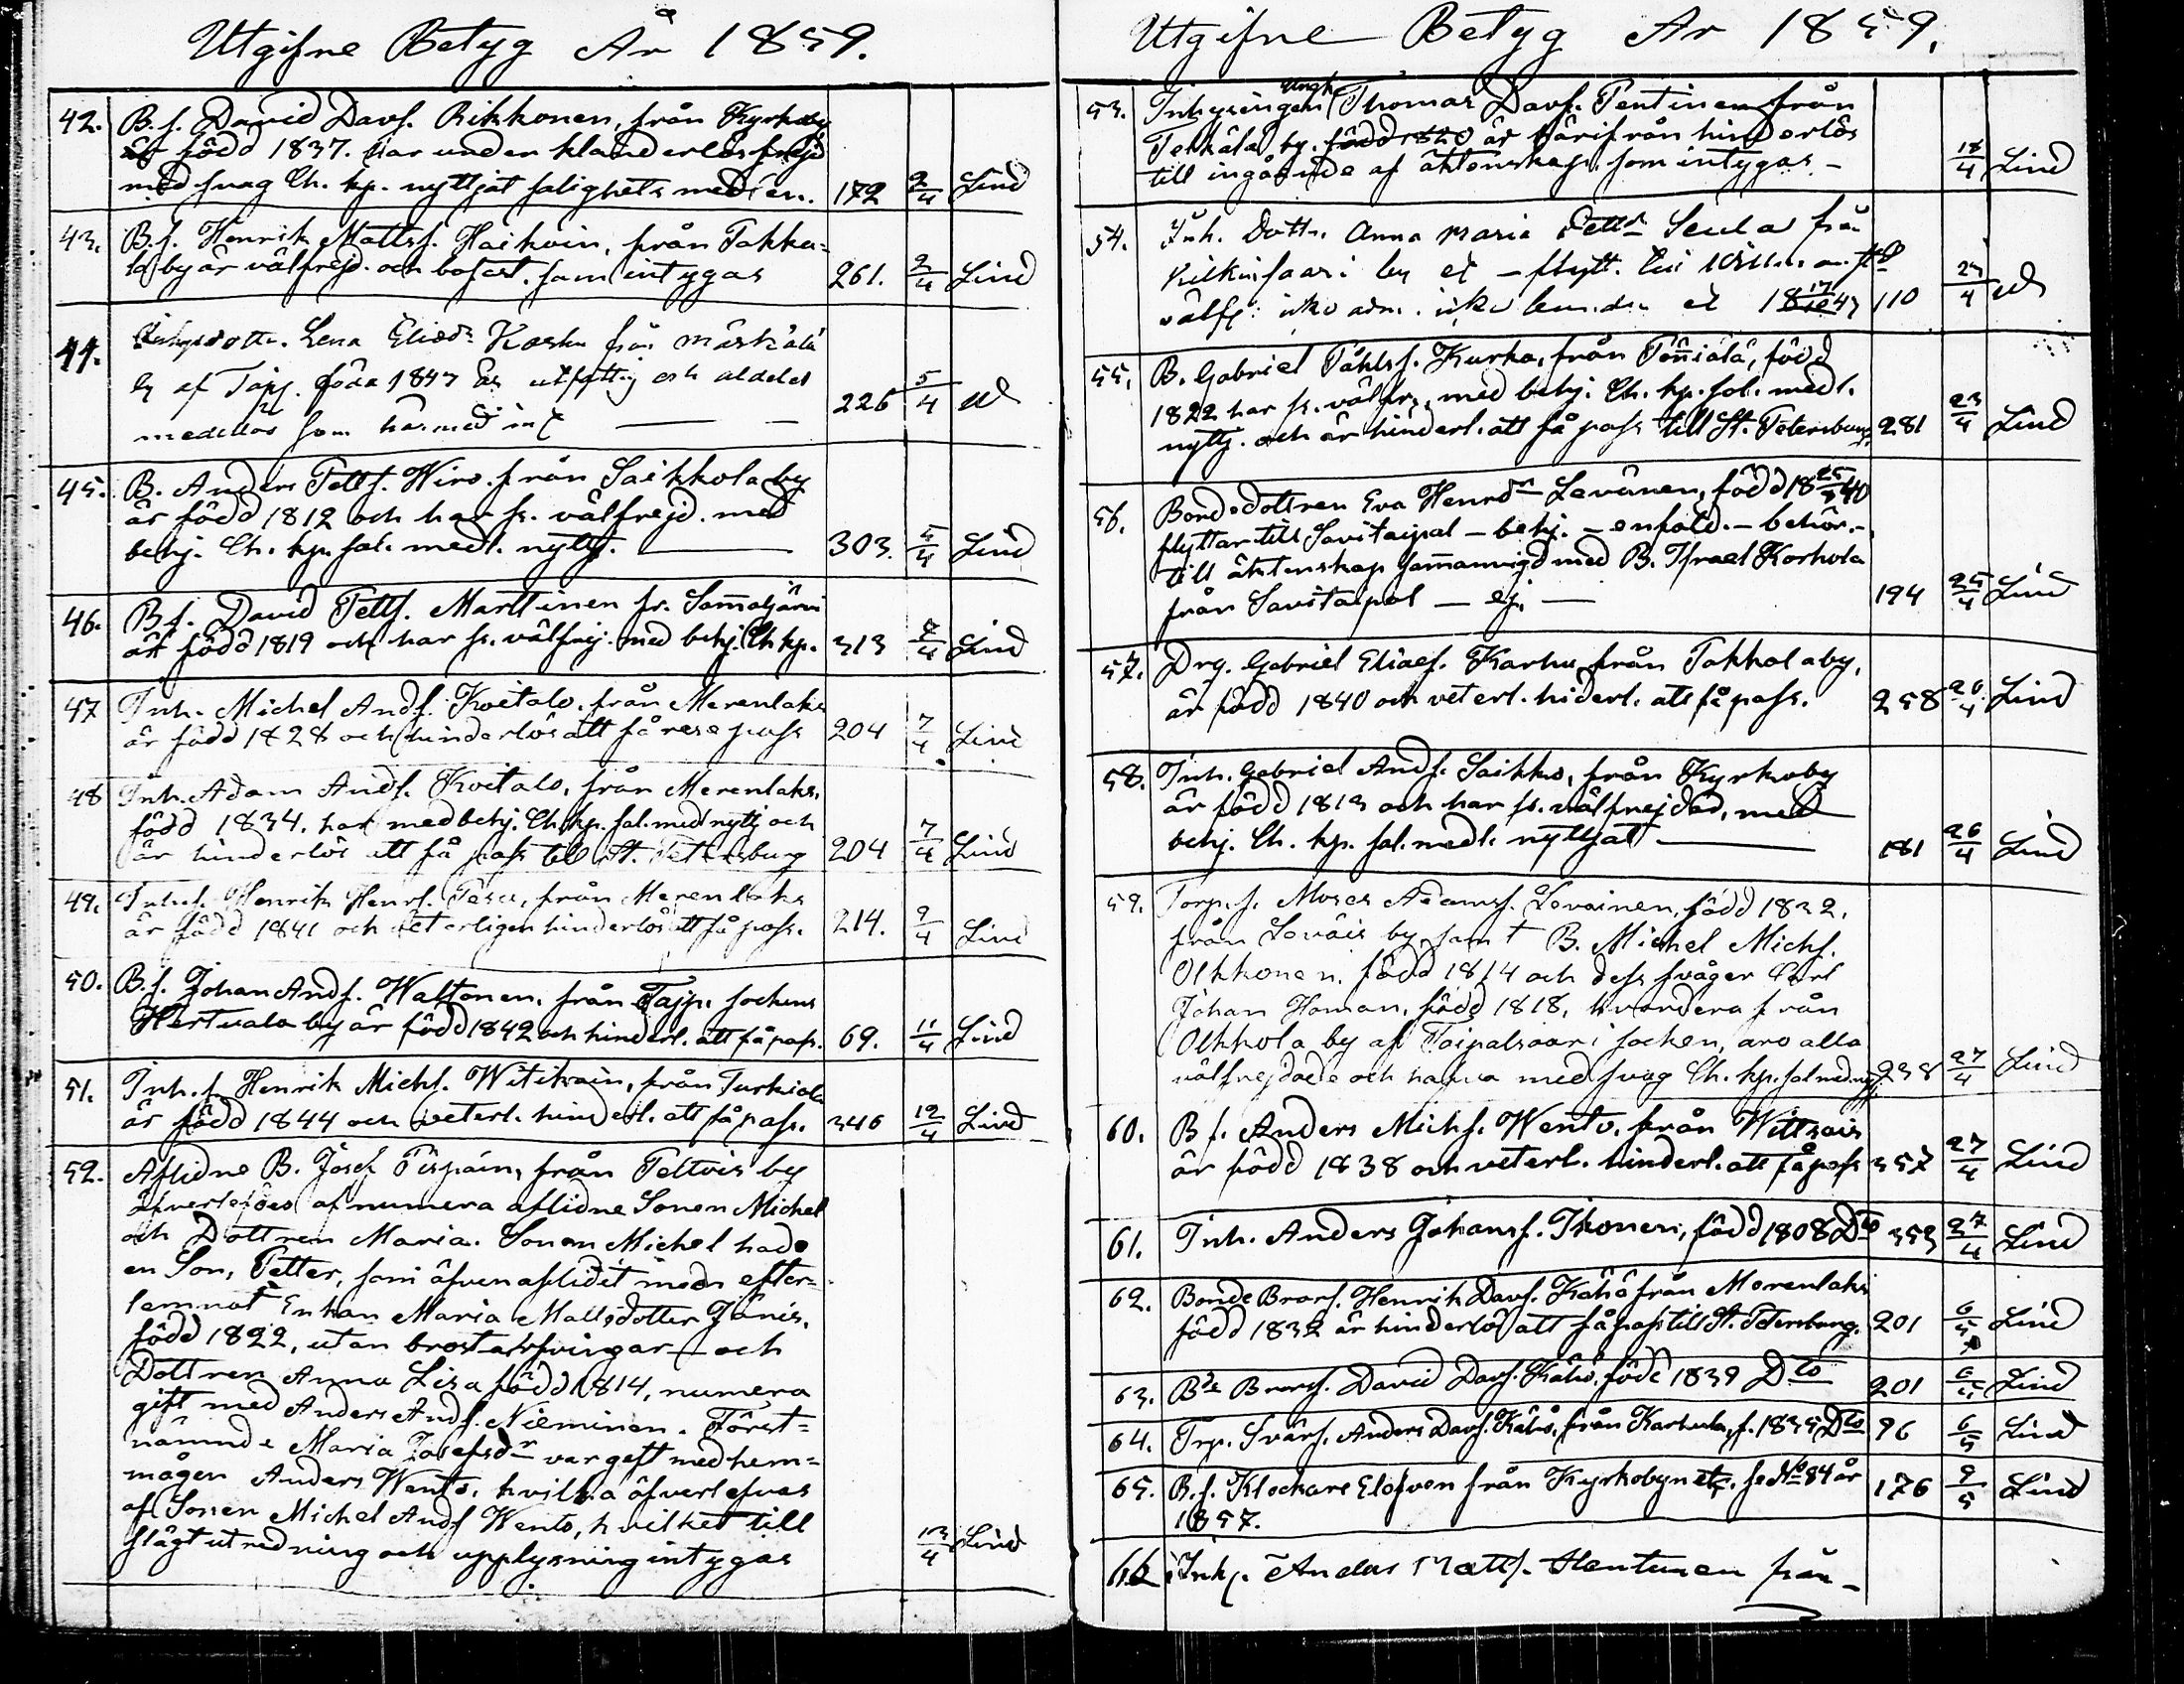 Utgifne Betyg År 1859.
42. B.s. David Davs. Rikkonen, från Kyrkoby
är född 1837. har under klanderlös frejd
med svag Ch. kp. nyttjat salighets medlen. 172 2/4 Lind
43. B.s. Henrik Matts. Haikoin, från Takka=
la by är välfrejd. och bofast, som intygas 261. 2/4 Lind
44. Lena Eliaed:r från
by af Taip. föda 1847 är utfattig och aldeles
medellös som härmed int 226 5/4
45. B. Anders Petts. Wiro. från Saikkola by
är född 1812 och har fr. välfrejd. med
behj. Ch. kp. sal. medl. nyttj. 303. 5/4 Lind
46. B.s. David Petts. Marttinen fr. Sam̄aljärvi
är född 1819 och har fr. välfrej. med behj. Ch kp. 313 7/4 Lind
47 Inh. Michel Ands. Koitalo, från Merenlaks
är född 1828 och hinderlös att få rese pass 204 7/4 Lind
48 Inh. Adam Ands. Koitalo, från Merenlaks,
född 1834. har med behj. Ch. kp. sal. med nyttj och
är hinderlös att få pass till St. Petersburg 204 7/4 Lind
49. Inh.s. Henrik Henrs. Pesu, från Merenlaks
är född 1841 och veterligen hinderlös att få pass. 214. 9/4 Lind
50. B.s. Johan Ands. Waltonen, från Taip. sockens
Hertuala by är född 1842 och hinderl. att få pass. 69. 11/4 Lind
51. Inh.s. Henrik Michs. Witikain, från Turkiala
är född 1844 och veterl. hinderl. att få pass. 346 12/4 Lind
52. Aflidne B. Josef Pispain, från Peltois by
äfverlefdes af numera aflidne Sonen Michel
och Dottren Maria. Sonen Michel hade
en Son, Petter, som äfven aflidit men efter=
lemnat Enkan Maria Mattsdotter Jänis,
född 1822, utan brostarfvingar och
Dottren Anna Lisa född 1814, numera
gift med Anders Ands. Nieminen. Först=
nämnde Maria Josefsd:r var gift med hem=
mågen Anders Wento, hvilka äfverlefves
af Sonen Michel Ands Wento, hvilket till
slägtutredning och upplysning intygas 13/4 Lind
Utgifne Betyg År 1859.
53. Inhysingen Ungk. Thomas Davs. Pentinen från
by. född 1820 är härifrån hinderlös
till ingående af äktenskap, som intygas. 18/4 Lind
54. Inh. Dottr. Anna Maria Pett:r Seula frå
Kilkinsaari by ei – flytt. till
110 24/4
55. B. Gabriel Påhls. Kurko, från Pön̄iälä, född
1822 har fr. välfrej, med behj. Ch. kp. sal. medl.
nyttj. och är hinderl. att få pass till St. Petersburg 281 23/4 Lind
56. Bondedottren Eva Henrd:r Levänen, född 18 25/3 40
flyttar till Savitaipal – behj. – enfald. – behör. –
till äktenskap sam̄anvigd med B. Israel Korhola
från Savitaipal – ej. – 194 25/4 Lind
57. Drg. Gabriel Eliaes. Karhu från Takkola by,
är född 1840 och veterl. hiderl. att få pass. 258 26/4 Lind
58. Inh. Gabriel Ands. Saikko, från Kyrkoby
är född 1813 och har fr. välfrejdad, med
behj. Ch. kp. sal. medl. nyttjat 181 26/4 Lind
59. Torp.s. Moses Adams. Levainen, född 1832,
från Leväis by, samt B. Michel Michs.
Olkkonen, född 1814 och dess svåger Carl
Johan Homan, född 1818, hvardera från
Olkkola by af Taipalsaari socken, äro alla
välfrejdade och hafva med svag Ch. kp. sal med nyttj. 238 27/4 Lind
60. B s. Anders Michs. Wento, från Wittsais
är född 1838 och veterl. hinderl. att få pass 357 27/4 Lind
61. Inh. Anders Johans. Ikonen, född 1808 Dto 353 27/4 Lind
62. Bonde Brors. Henrik Davs. Kähö från Merenlaks
född 1832 är hinderlös att få pass till St. Petersburg. 201 6/5 Lind
63. Bde Brors. David Davs. Kähö, född 1839 Dto 201 6/5 Lind
64. Trp. Svärs. Anders Davs. Kähö, från Karhula, f. 1835 Dto 96 6/5 Lind
65. B.s. Klockare Elofven från Kyrkobyn etc. se No 84 år
1857. 176 9/5 Lind
66 Inh. Anders Matts. Hentunen från